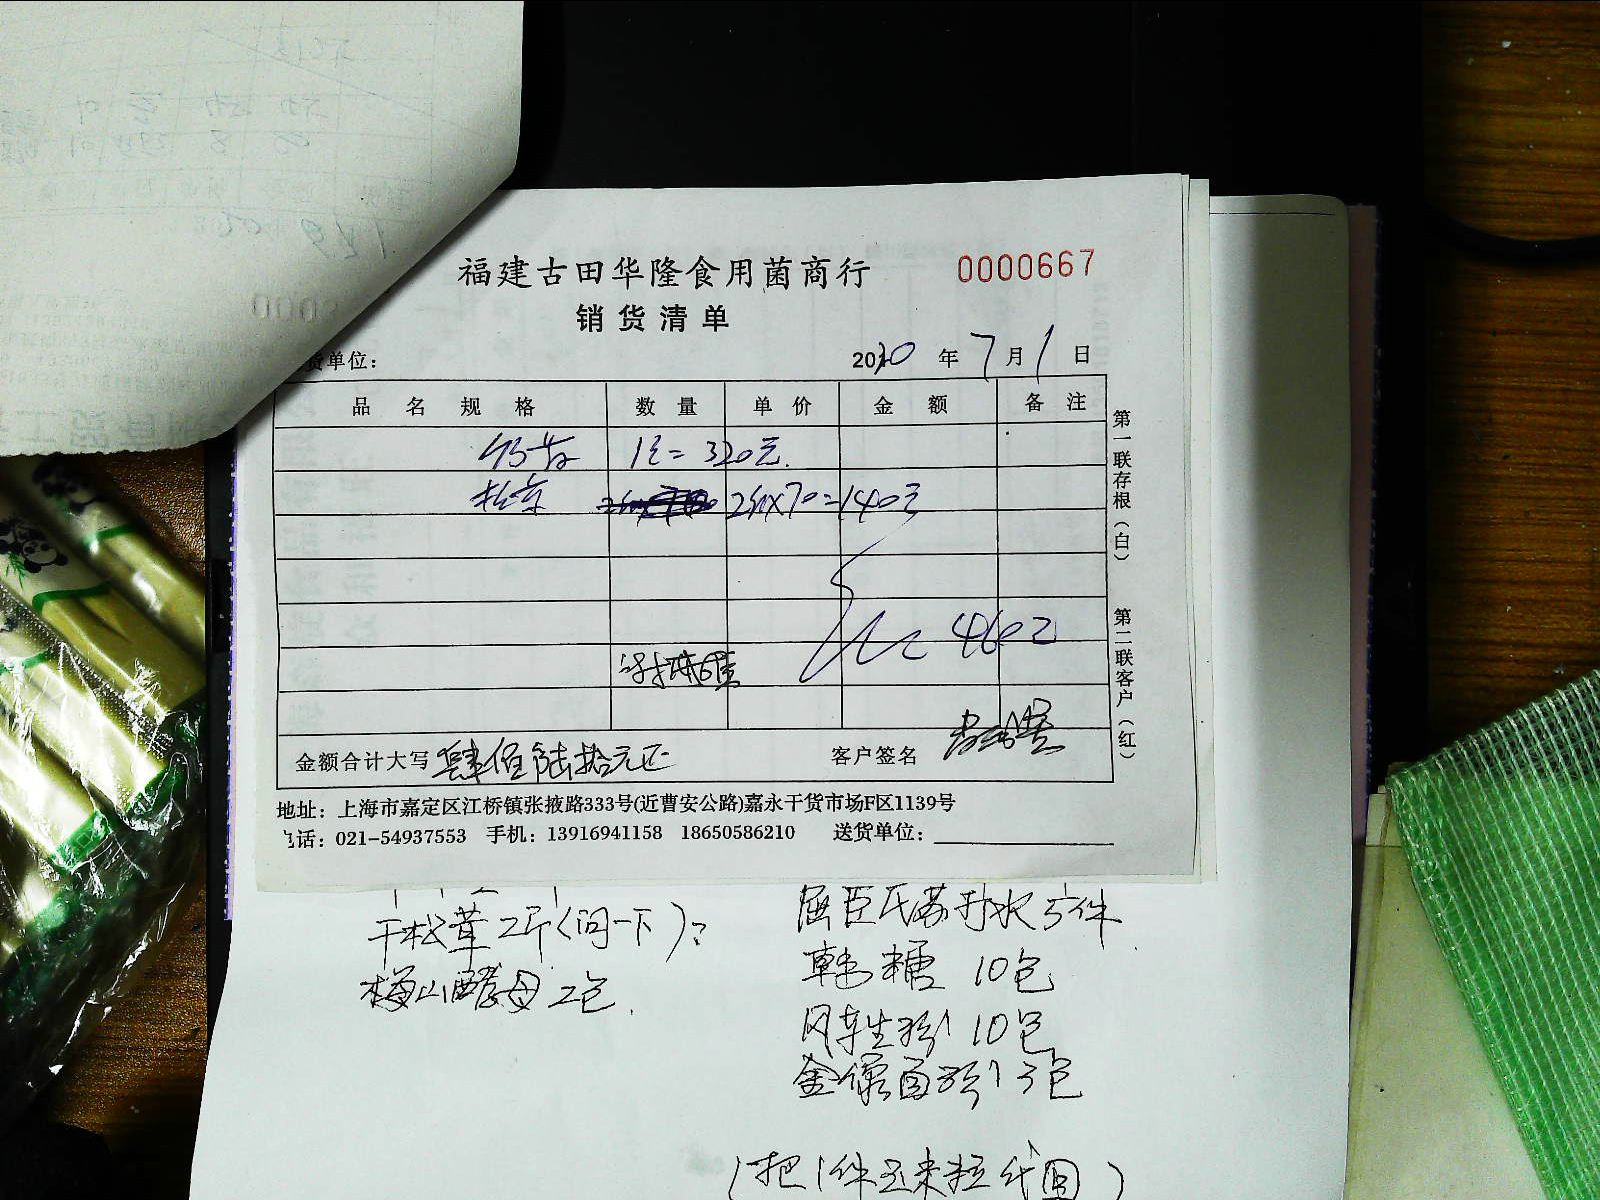 福建古田华隆食用菌商行
0000667
销货清单
货单位：
2020 年 7 月 1 日
品名规格 数量 单价 金额 备注
1包=320元.
松茸 2斤x70=140元
460元
金额合计大写 肆佰陆拾元正
客户签名
地址：上海市嘉定区江桥镇张掖路333号(近曹安公路)嘉永干货市场F区1139号
话：021-54937553 手机：13916941158 18650586210 送货单位：
第一联存根（白）
第二联客户（红）
干松茸2斤(问一下)?
梅山酵母2包.
屈臣氏苏打水5件
韩糖 10包
风车生粉 10包
金像面粉 3包
(把1件玉米粒代回)